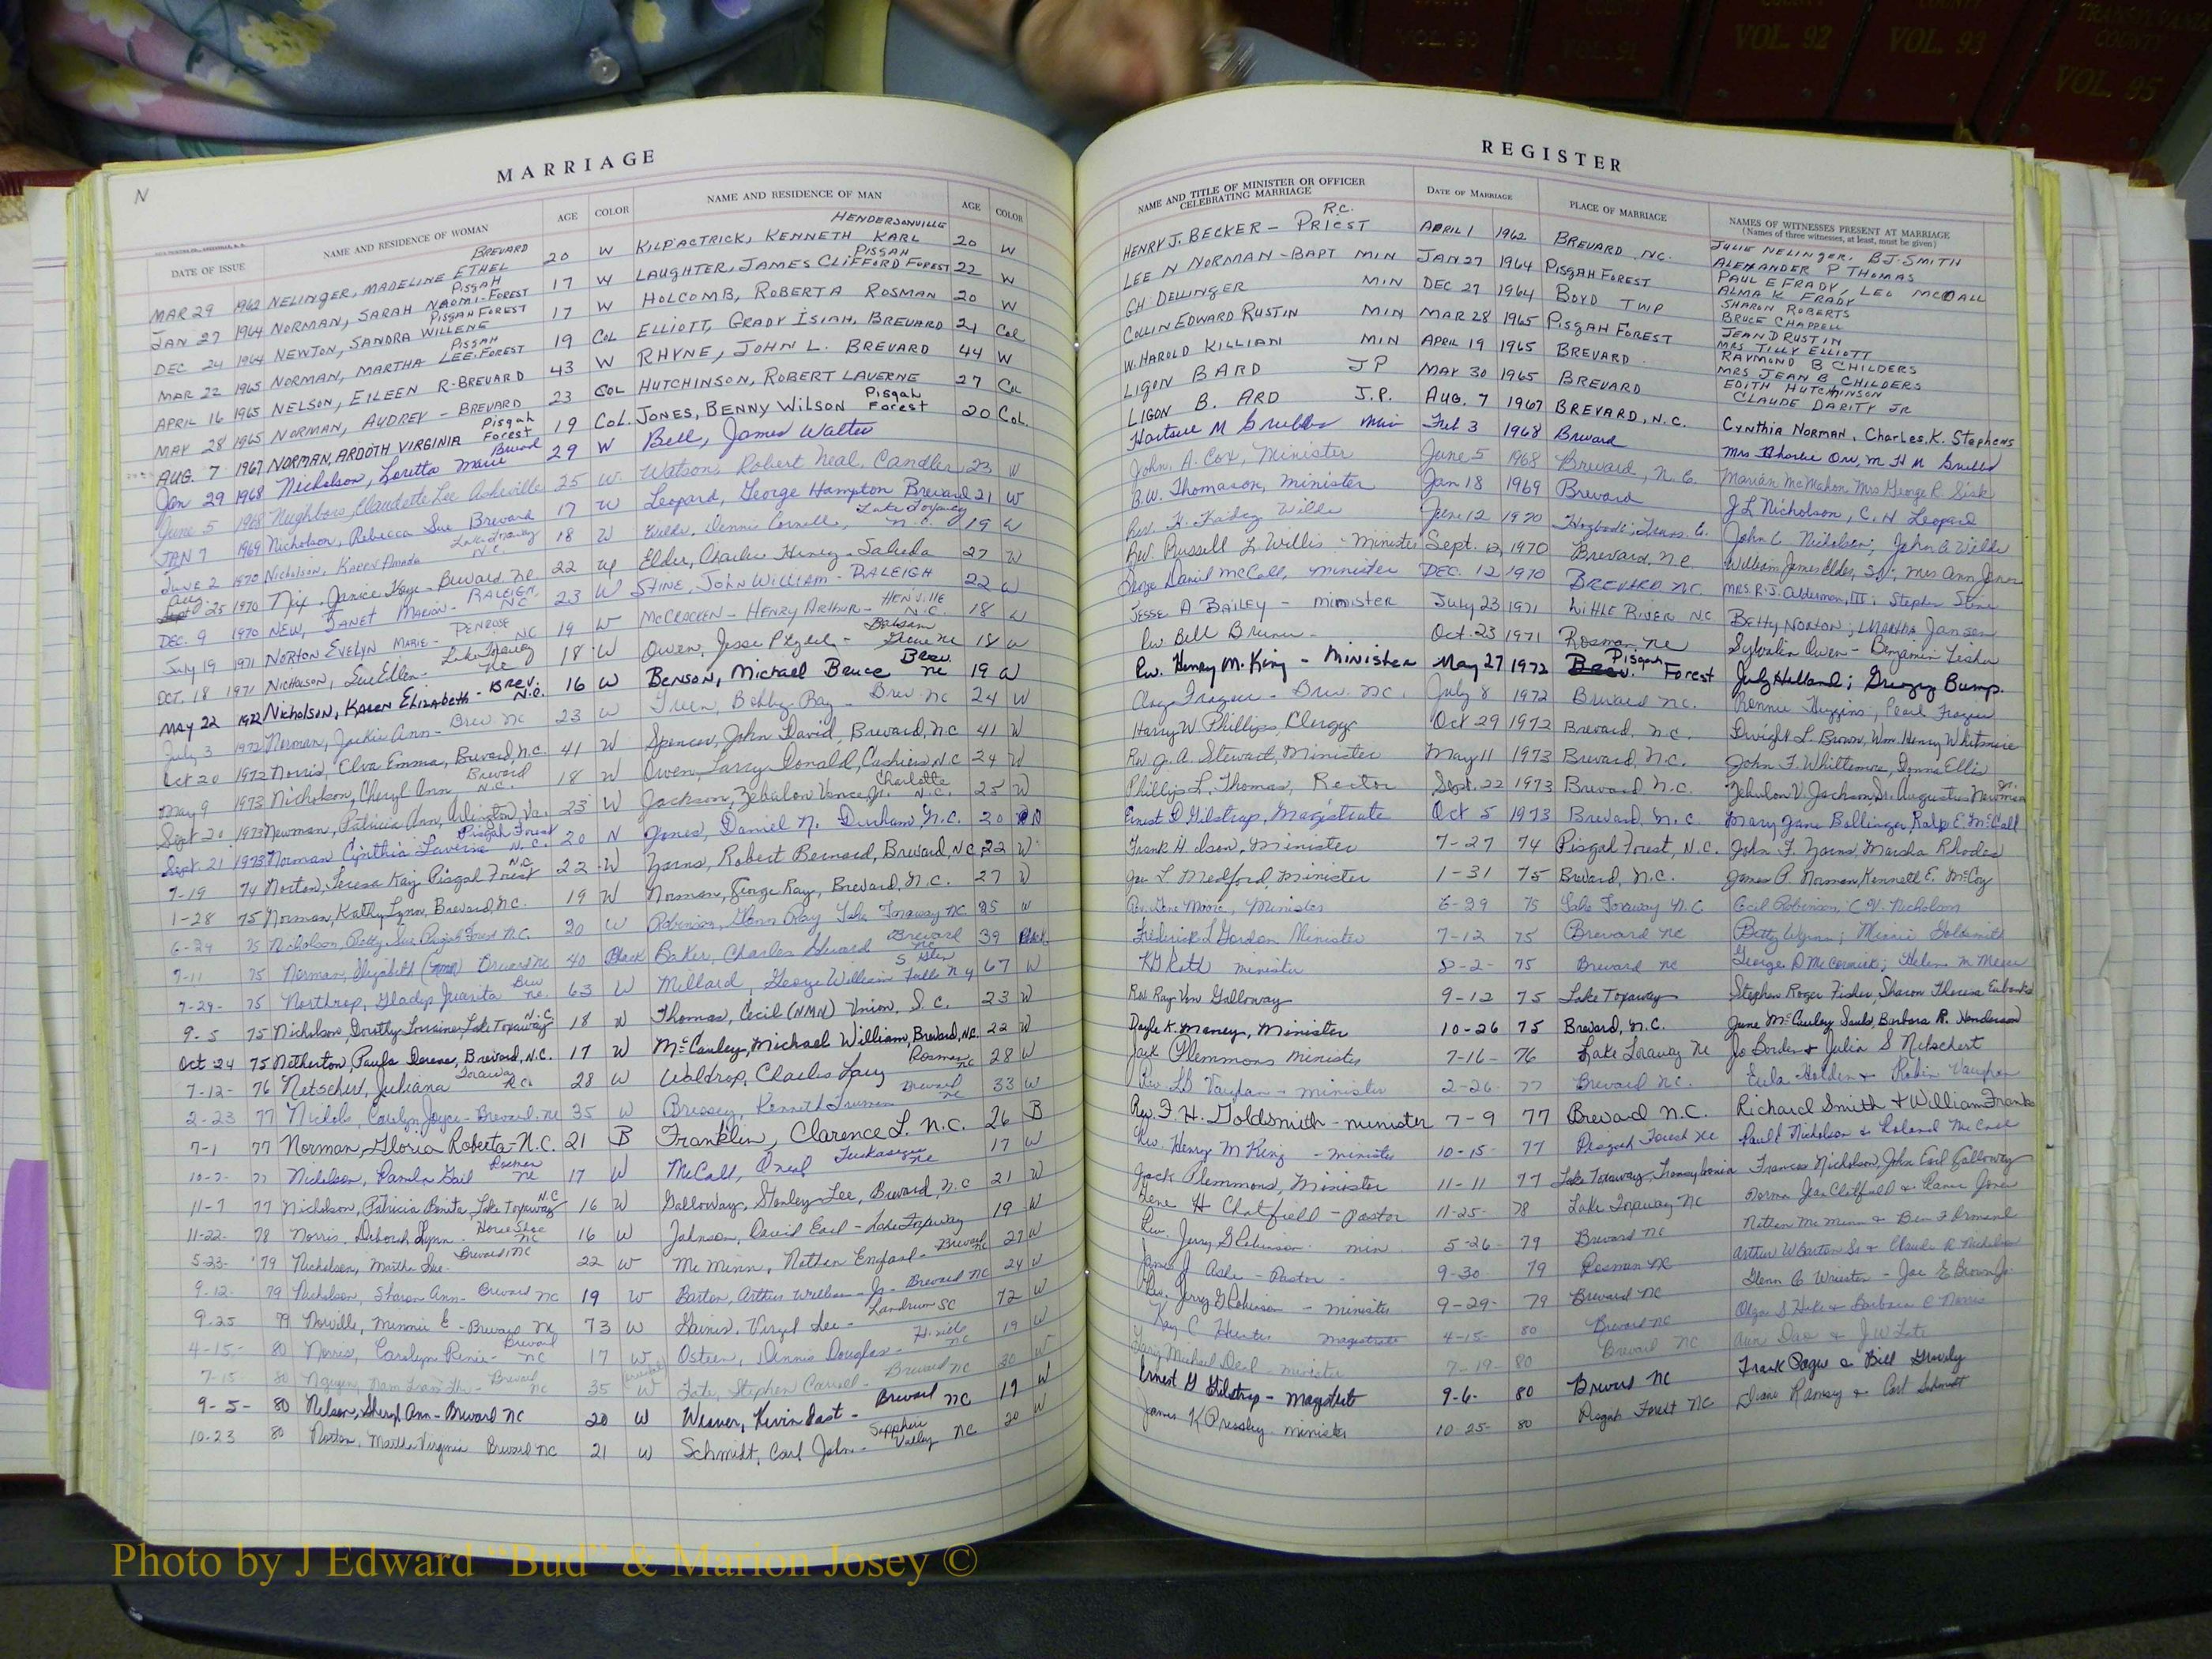 COUNTY COUNTY COUNTY COUNTY TRANSYLVANIA COUNTY
VOL. 90 VOL. 91 VOL. 92 VOL. 93 VOL. 95
MARRIAGE
N
DATE OF ISSUE NAME AND RESIDENCE OF WOMAN AGE COLOR NAME AND RESIDENCE OF MAN AGE COLOR
MAR 29 1962 NELINGER, MADELINE ETHEL BREVARD 20 W KILPACTRICK, KENNETH KARL HENDERSONVILLE 20 W
JAN 27 1964 NORMAN, SARAH NAOMI - PISGAH FOREST 17 W LAUGHTER, JAMES CLIFFORD PISGAH FOREST 22 W
DEC 24 1964 NEWTON, SANDRA WILLENE PISGAH FOREST 17 W HOLCOMB, ROBERT A ROSMAN 20 W
MAR 22 1965 NORMAN, MARTHA LEE PISGAH FOREST 19 COL ELLIOTT, GRADY ISIAH, BREVARD 21 COL
APRIL 16 1965 NELSON, EILEEN R - BREVARD 43 W RHYNE, JOHN L. BREVARD 44 W
MAY 28 1965 NORMAN, AUDREY - BREVARD 23 COL HUTCHINSON, ROBERT LAVERNE 27 COL
AUG. 7 1967 NORMAN, ARDOTH VIRGINIA Pisgah Forest 19 COL. JONES, BENNY WILSON Pisgah Forest 20 COL.
Jan 29 1968 Nicholson, Loretta Marie Brevard 29 W Bell, James Walter
June 5 1968 Neighbors, Claudette Lee Asheville 25 W. Watson, Robert Neal, Candler 23 W
JAN 7 1969 Nicholson, Rebecca Sue Brevard 17 W Leopard, George Hampton Brevard 21 W
June 2 1970 Nicholson, Karen Amada Lake Toxaway N.C. 18 W Wilde, Dennis Cornell, Lake Toxaway N.C. 19 W
Aug 25 1970 Nix, Janice Kaye - Brevard N.C. 22 W Elder, Charlie Henry - Saluda 27 W
DEC. 9 1970 NEW, JANET MARION - RALEIGH, NC 23 W STINE, JOHN WILLIAM - RALEIGH 22 W
July 19 1971 NORTON EVELYN MARIE - PENROSE NC 19 W McCRACKEN - HENRY ARTHUR - HEN'VILLE N.C. 18 W
OCT. 18 1971 Nicholson, Sue Ellen - Lake Toxaway NC 18 W Owen, Jesse - Balsam Grove NC 18 W
MAY 22 1972 Nicholson, Karen Elizabeth - Brev. N.C. 16 W Benson, Michael Bruce Brev. NC 19 W
July 3 1972 Norman, Jackie Ann - Brev. NC 23 W Green, Bobby Ray - Brev. NC 24 W
Oct 20 1972 Norris, Elva Emma, Brevard, N.C. 41 W Spencer, John David, Brevard, N.C 41 W
May 9 1973 Nicholson, Cheryl Ann Brevard N.C. 18 W Owen, Larry Donald, Cashiers N.C 24 W
Sept 20 1973 Newman, Patricia Ann, Arlington, Va. 23 W Jackson, Zebulon Vance, Jr. Charlotte N.C. 25 W
Sept. 21 1973 Norman Cynthia Laverne Pisgah Forest N.C. 20 N Jones, Daniel N. Durham, N.C. 20 N
7-19 74 Norton, Teresa Kay Pisgah Forest N.C. 22 W Zarns, Robert Bernard, Brevard, N.C. 22 W
1-28 75 Norman, Kathy Lynn, Brevard, N.C. 19 W Norman, George Ray, Brevard, N.C. 27 W
6-24 75 Nicholson, Betty Sue Pisgah Forest N.C. 20 W Robinson, Glenn Ray Lake Toxaway NC 25 W
7-11 75 Norman, Elizabeth (NMN) Brevard NC 40 Black Baker, Charles Brevard NC 39 Black
7-29- 75 Northrop, Gladys Juanita Brev NC. 63 W Millard, George William S Glen Falls N Y 67 W
9-5 75 Nicholson, Dorothy Lorraine, Lake Toxaway N.C. 18 W Thomas, Cecil (NMN) Union, S.C. 23 W
Oct 24 75 Netherton, Paula Darese, Brevard, N.C. 17 W McCauley, Michael William, Brevard, N.C. 22 W
7-12- 76 Netschert, Juliana Toxaway N.C. 28 W Waldrop, Charles Rosman NC 28 W
2-23 77 Nichols, Carolyn Joyce - Brevard NC 35 W Bressey, Kenneth Truman Brevard NC 33 W
7-1 77 Norman, Gloria Roberta - N.C. 21 B Franklin, Clarence L. N.C. 26 B
10-7- 77 Nicholson, Pamela Gail Rosman NC 17 W McCall, Oneal Tuckasegee NC 17 W
11-7 77 Nicholson, Patricia Bonita Lake Toxaway N.C 16 W Galloway, Stanley Lee, Brevard, N.C 21 W
11-22- 78 Norris, Deborah Lynn - Horse Shoe NC 16 W Johnson, David Earl - Lake Toxaway 19 W
5-23- 79 Nicholson, Martha Sue - Brevard NC 22 W McMinn, Nathan - Brevard NC 27 W
9-12- 79 Nicholson, Sharon Ann - Brevard NC 19 W Barton, Arthur William Jr - Brevard NC 24 W
9-25 79 Norville, Minnie E - Brevard NC 73 W Gaines, Virgil Lee - Landrum SC 72 W
4-15- 80 Norris, Carolyn Renie - Brevard NC 17 W Osteen, Dennis Douglas - H'ville NC 19 W
7-15 80 Nguyen, - Brevard NC 35 Tate, Stephen Carroll - Brevard NC 30 W
9-5- 80 Nelson, Sheryl Ann - Brevard NC 20 W Weaver, Kevin - Brevard NC 19 W
10-23 80 Norton, Martha Virginia Brevard NC 21 W Schmidt, Carl John - Sapphire Valley NC 20 W
REGISTER
NAME AND TITLE OF MINISTER OR OFFICER CELEBRATING MARRIAGE DATE OF MARRIAGE PLACE OF MARRIAGE NAMES OF WITNESSES PRESENT AT MARRIAGE
(Names of three witnesses, at least, must be given)
HENRY J. BECKER - R.C. PRIEST APRIL 1 1962 BREVARD NC. JULIE NELINGER, BJ SMITH
LEE N NORMAN - BAPT MIN JAN 27 1964 PISGAH FOREST ALEXANDER P THOMAS
PAUL E FRADY, LEO MCCALL
GH DELLINGER MIN DEC 27 1964 BOYD TWP ALMA K FRADY
SHARON ROBERTS
COLLIN EDWARD RUSTIN MIN MAR 28 1965 PISGAH FOREST BRUCE CHAPPELL
JEAN D RUSTIN
W. HAROLD KILLIAN MIN APRIL 19 1965 BREVARD MRS TILLY ELLIOTT
RAYMOND B CHILDERS
LIGON BARD JP MAY 30 1965 BREVARD MRS JEAN B CHILDERS
EDITH HUTCHINSON
CLAUDE DARITY JR
LIGON B. ARD J.P. AUG. 7 1967 BREVARD, N.C. Cynthia Norman, Charles K. Stephens
M Grubbs Min Feb 3 1968 Brevard Mrs Orr, M H M Grubbs
John A. Cox, Minister June 5 1968 Brevard, N.C. Marian McMahon Mrs George R. Sisk
B.W. Thomason, Minister Jan 18 1969 Brevard J L Nicholson, C. H Leopard
Rev. Wilde June 12 1970 John C Nicholson; John G Wilde
Rev. Russell L Willis - Minister Sept. 12 1970 Brevard, N.C William James Elder, Sr; Mrs Ann Jones
George Daniel McCall, minister DEC. 12 1970 BREVARD, NC MRS. R.J. Alderman, III; Stephen Stine
JESSE A BAILEY - minister July 23 1971 LITTLE RIVER NC Betty Norton; Martha Jansen
Rev Bill Bruner - Oct. 23 1971 Rosman, NC Sylvalin Owen - Benjamin Fisher
Rev. Henry M. King - Minister May 27 1972 Pisgah Forest Judy Holland; Gregory Bump.
Frazier - Brev. NC. July 8 1972 Brevard NC. Ronnie Huggins, Pearl Frazier
Harry W Phillips, Clergy Oct 29 1972 Brevard, N.C. Dwight L. Brown, Wm. Henry Whitmire
Rev J. A. Stewart, Minister May 11 1973 Brevard, N.C. John F. Whittemore, Donna Ellis
Phillips L. Thomas, Rector Sept. 22 1973 Brevard N.C. Zebulon V. Jackson, Sr. Augustus Newman Jr.
Ernest D Gilstrap, Magistrate Oct 5 1973 Brevard, N.C Mary Jane Ballinger, Ralp E. McCall
Frank H. Ison, Minister 7-27 74 Pisgah Forest, N.C. John F. Zarns, Marsha Rhodes
Joe L Medford, minister 1-31 75 Brevard, N.C. James P. Norman, Kenneth E. McCoy
Rev. Gene Moore, Minister 6-29 75 Lake Toxaway N.C Cecil Robinson, C.V. Nicholson
Frederick L Gordon Minister 7-12 75 Brevard NC Betty Wynn; Minnie Goldsmith
minister 8-2- 75 Brevard NC George D McCormick; Helen M Meese
Rev. Ray Von Galloway 9-12 75 Lake Toxaway Stephen Roger Fisher, Sharon Theresa Eubanks
Doyle K. Maney, Minister 10-26 75 Brevard, N.C. June McCauley Sauls, Barbara R. Henderson
Jack Plemmons minister 7-16- 76 Lake Toxaway NC Jo Borden & Julia S Netschert
Rev. LB Vaughn - minister 2-26- 77 Brevard NC. Eula Holden & Robin Vaughn
Rev. F. H. Goldsmith - minister 7-9 77 Brevard N.C. Richard Smith & William Franks
Rev. Henry M King - minister 10-15- 77 Pisgah Forest NC Paul E Nicholson & Roland McCall
Jack Plemmons, Minister 11-11 77 Lake Toxaway, Transylvania Frances Nicholson, John Earl Galloway
Gene H Chatfield - Pastor 11-25- 78 Lake Toxaway NC Norma Jean Chatfield & Jones
Rev. Jerry G Robinson min 5-26- 79 Brevard NC Nathan McMinn &
James J Ashe - Pastor - 9-30 79 Rosman NC Arthur W Barton Sr & Claude R Nicholson
Rev. Jerry G Robinson - minister 9-29- 79 Brevard NC Glenn C. - Joe E Brown Jr
Kay C Hunter magistrate 4-15- 80 Brevard NC & Barbara C Norris
Gary Michael Deal - minister 7-19- 80 Brevard NC & J W Tate
Ernest D Gilstrap - Magistrate 9-6- 80 Brevard NC Frank Page & Bill Gravely
James K Pressley minister 10-25- 80 Pisgah Forest NC Diane Ramsey & Carl Schmidt
Photo by J Edward “Bud” & Marion Josey ©